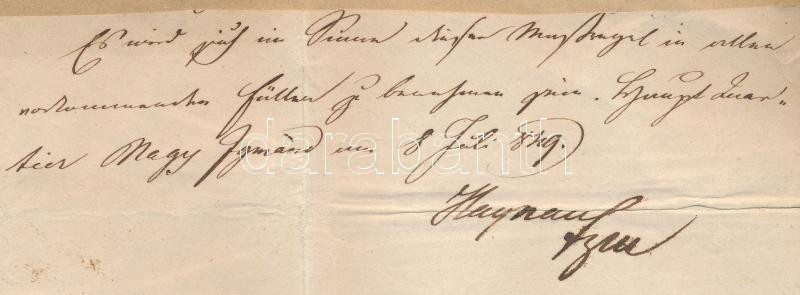 Es wird sich im Sinne dieser Maßregel in allen
vorkommenden Fällen zu benehmen sein. Haupt Quar-
tier Nagy Igmánd am 8 Juli 849.
Haynau
FZM
darabanth